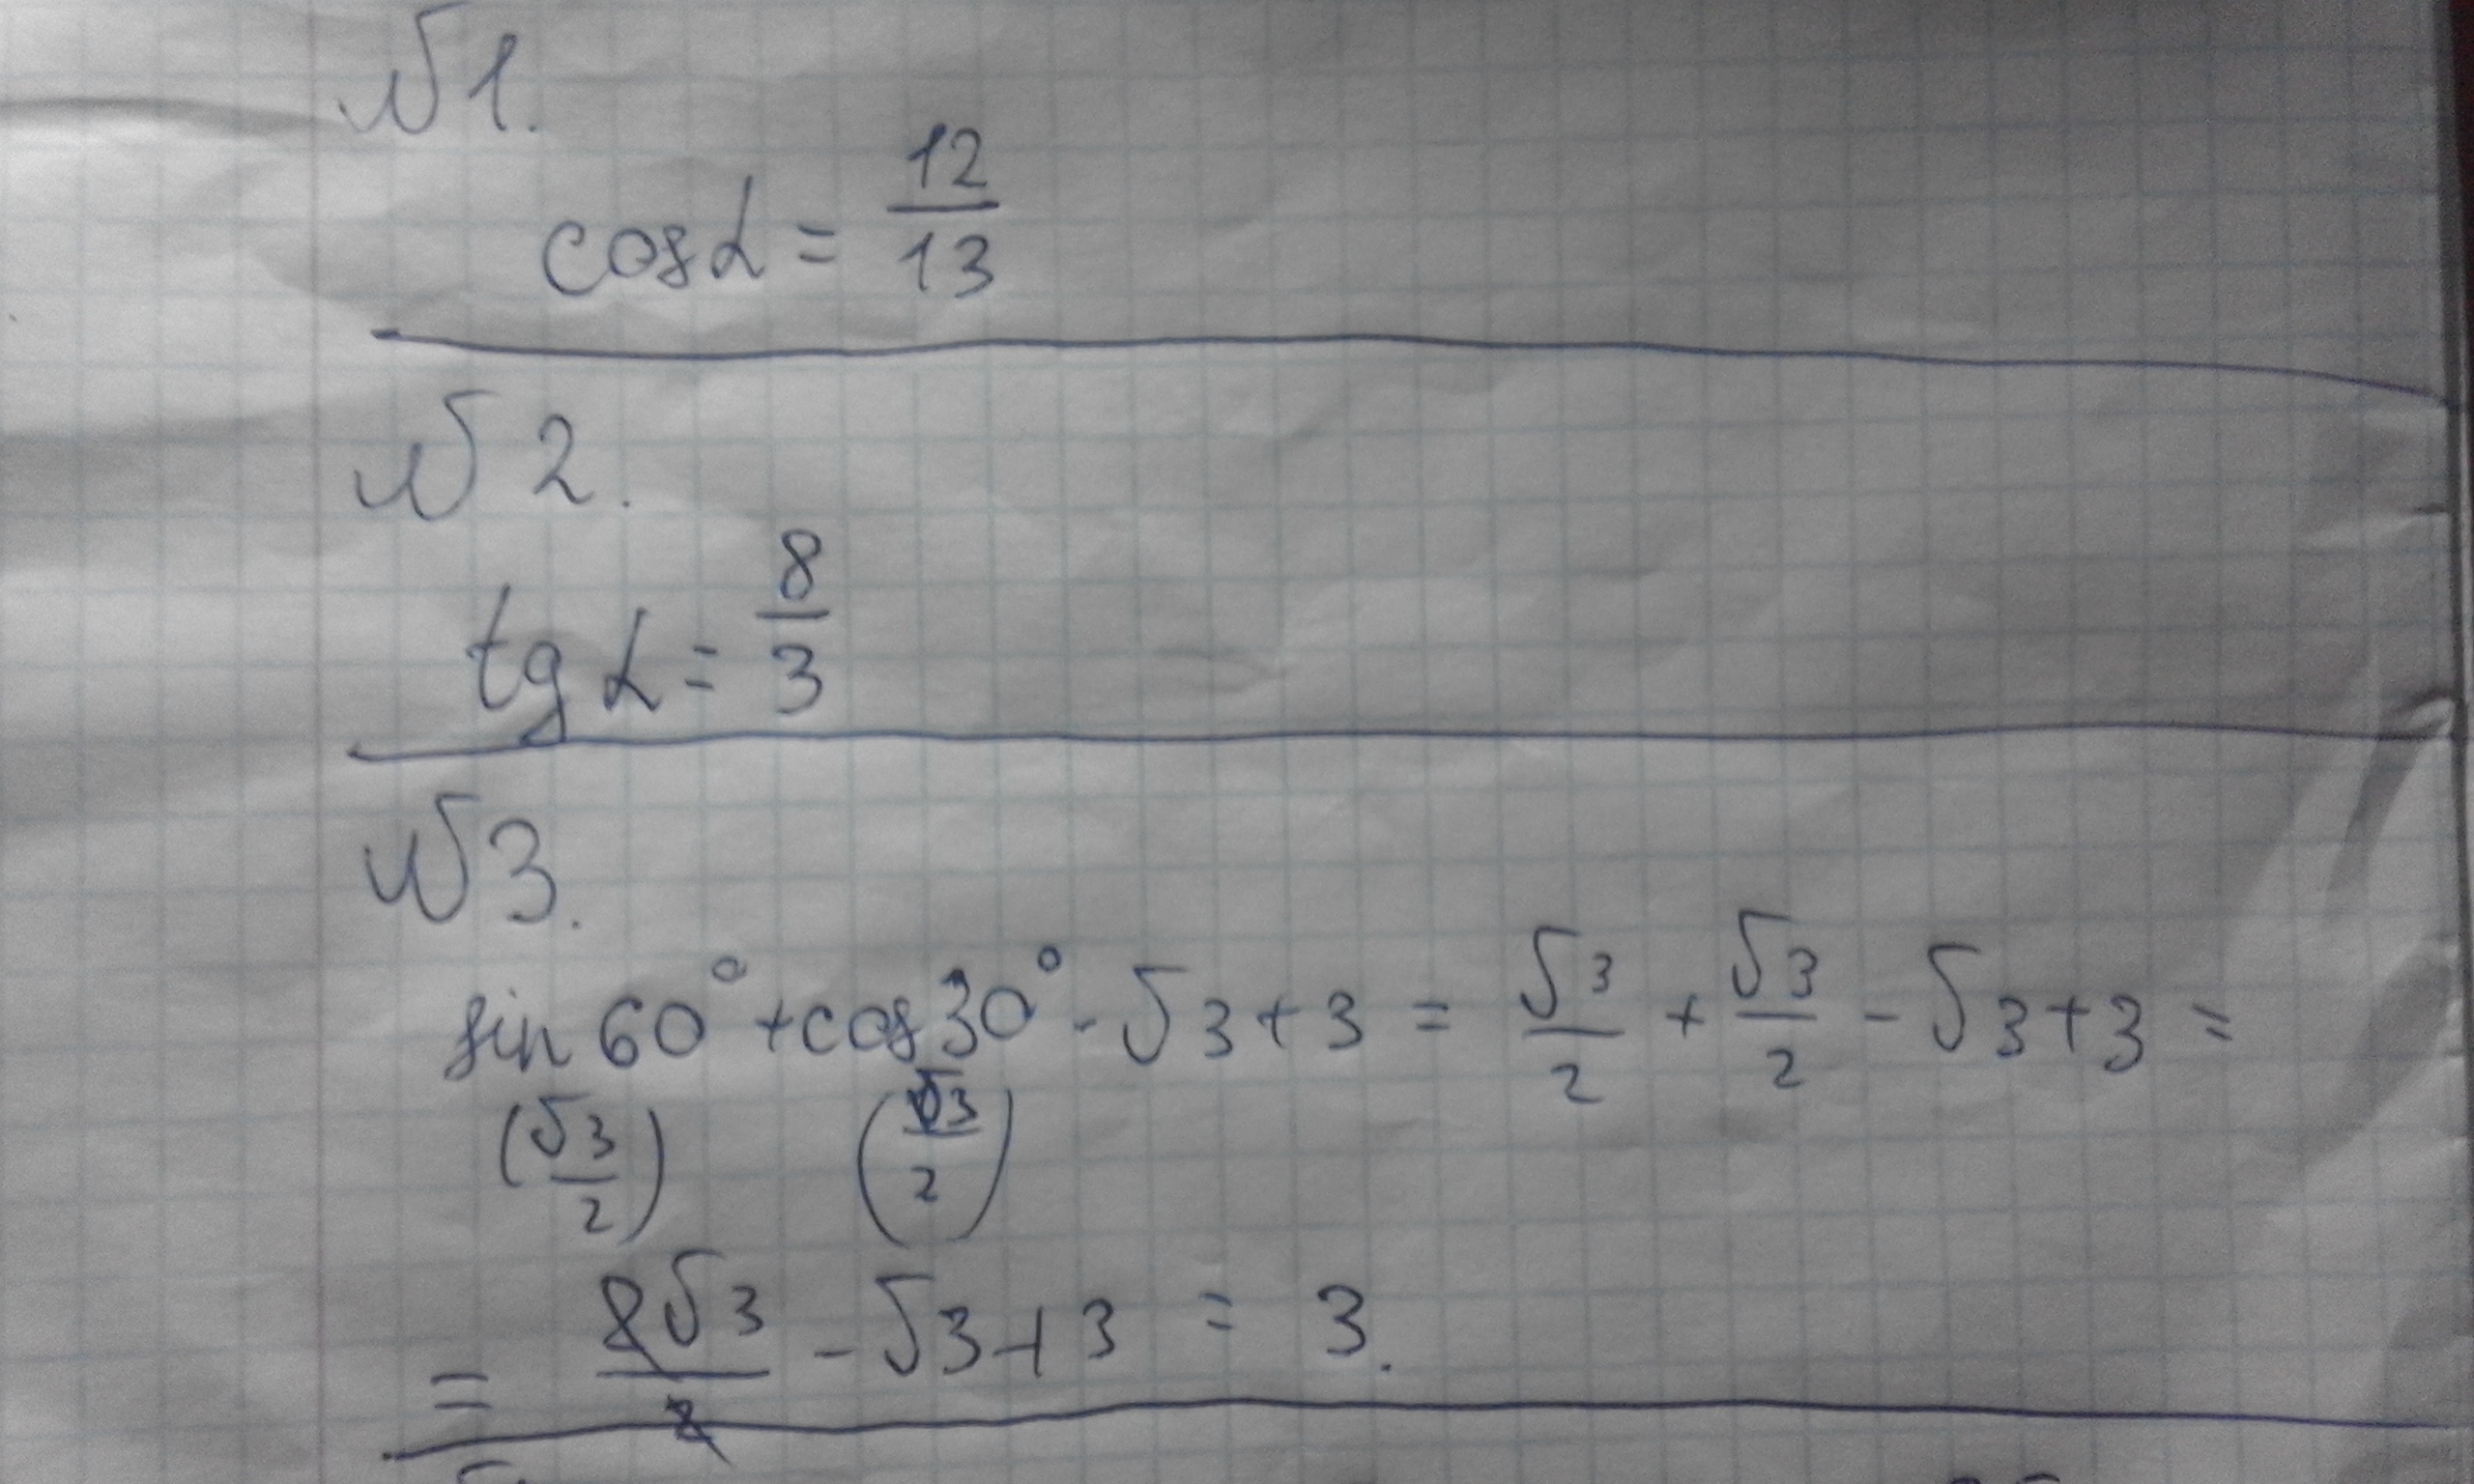 №1.
cos α = 12/13
№2.
tg α = 8/3
№3.
sin 60° + cos 30° - √3 + 3 = √3/2 + √3/2 - √3 + 3 =
(√3/2) (√3/2)
= 2√3/2 - √3 + 3 = 3.